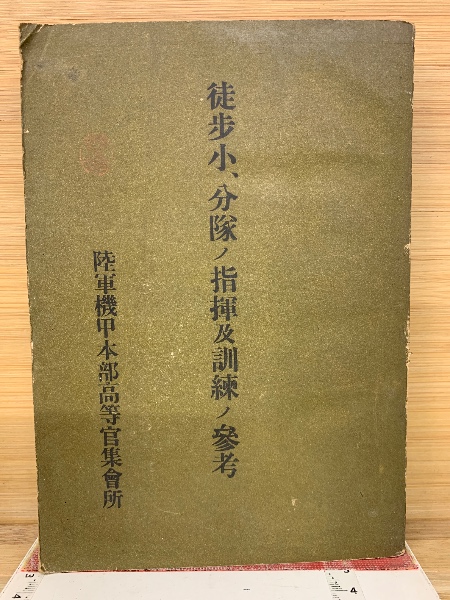 徒步小、分隊ノ指揮及訓練ノ參考
陸軍機甲本部高等官集會所